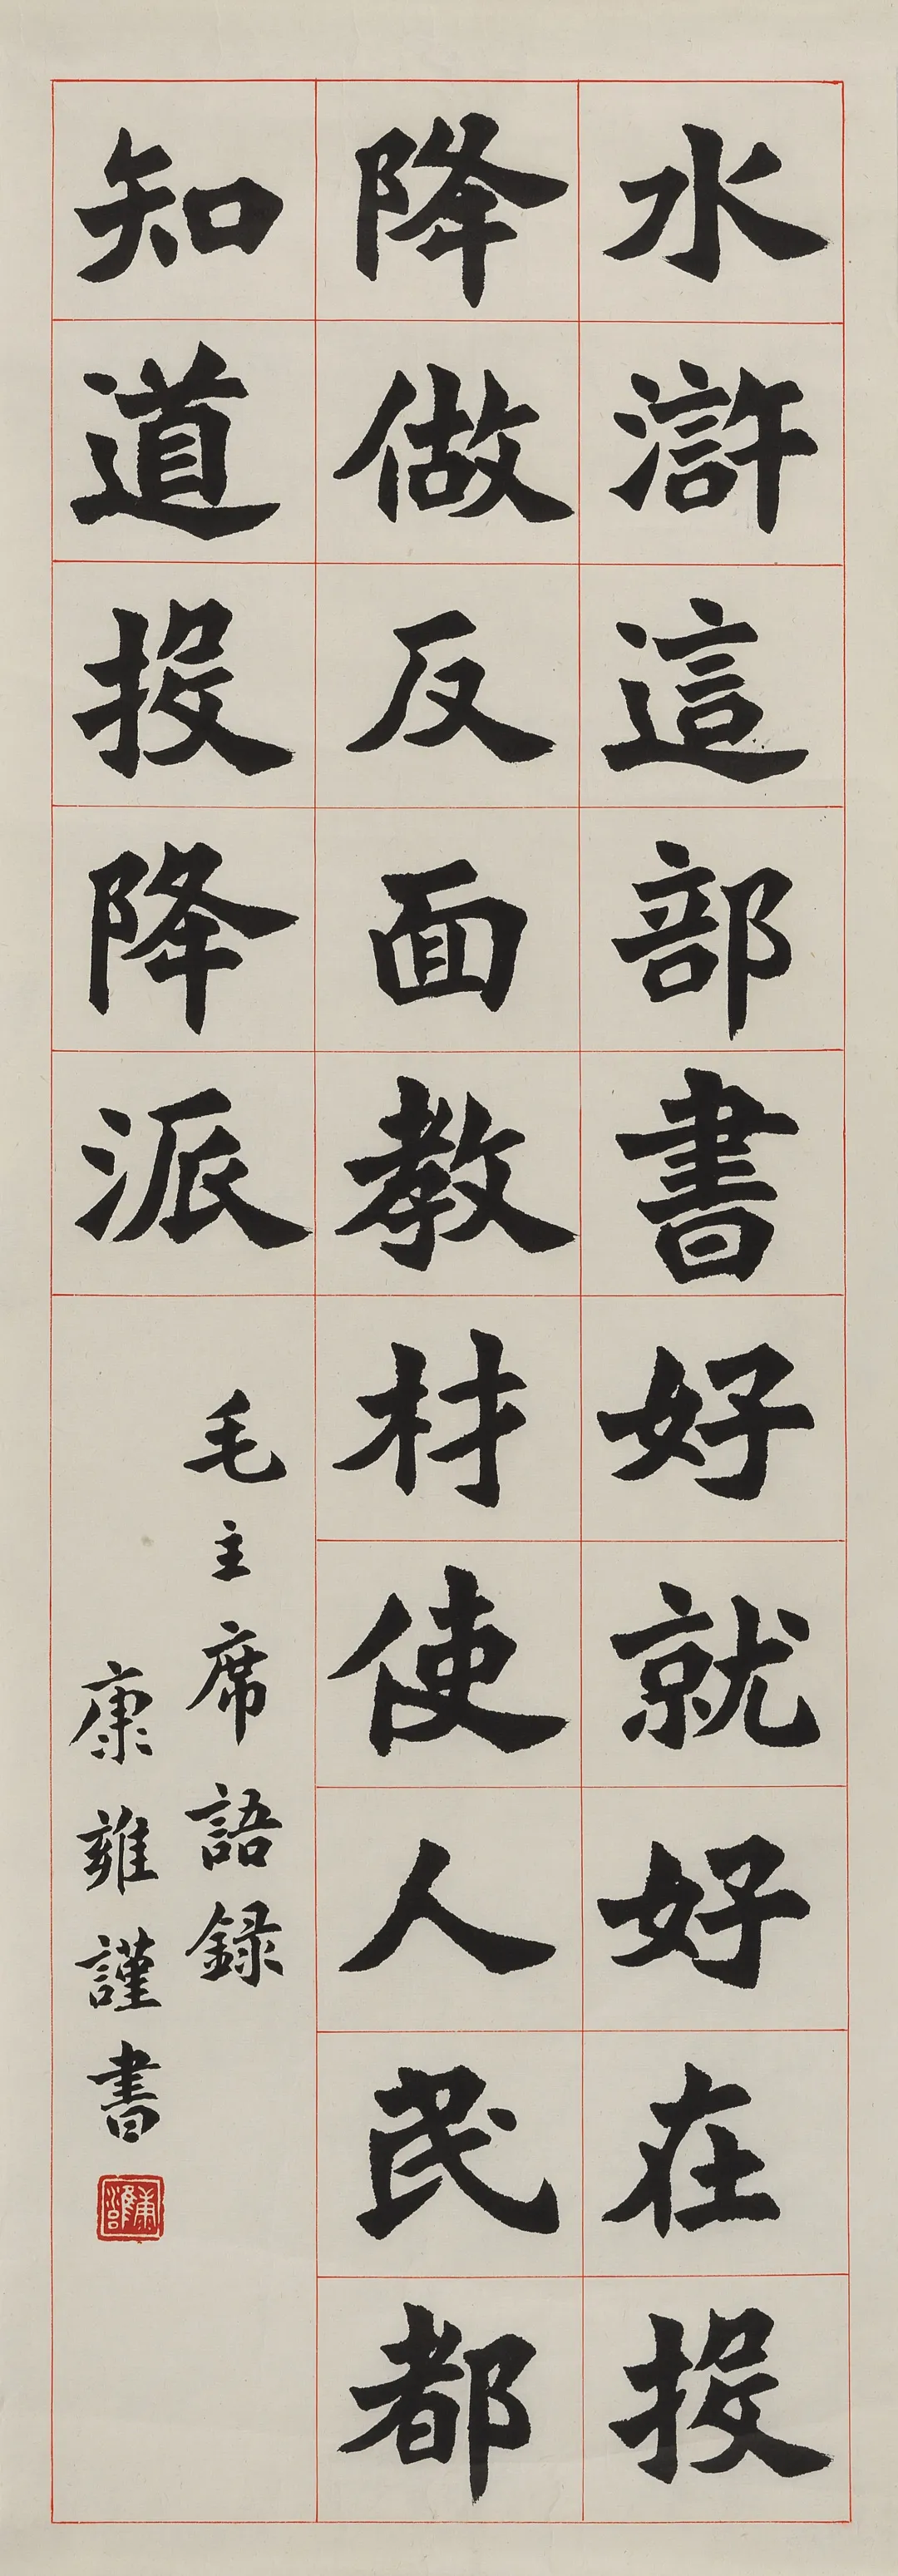 水滸這部書好就好在投
降做反面教材使人民都
知道投降派
毛主席語録
康雍謹書
康雍